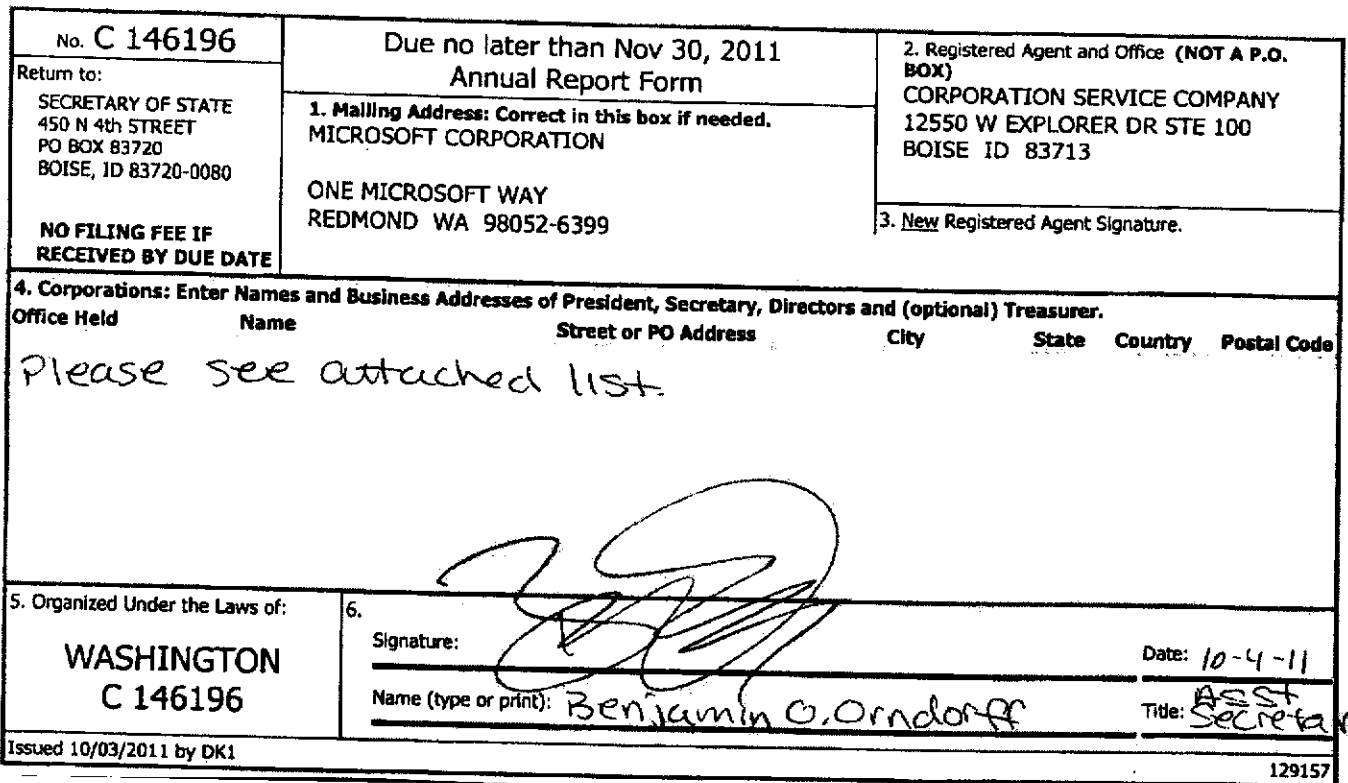 No. C 146196
Return to:
SECRETARY OF STATE
450 N 4th STREET
PO BOX 83720
BOISE, ID 83720-0080
NO FILING FEE IF
RECEIVED BY DUE DATE
Due no later than Nov 30, 2011
Annual Report Form
1. Mailing Address: Correct in this box if needed.
MICROSOFT CORPORATION
ONE MICROSOFT WAY
REDMOND WA 98052-6399
2. Registered Agent and Office (NOT A P.O.
BOX)
CORPORATION SERVICE COMPANY
12550 W EXPLORER DR STE 100
BOISE ID 83713
3. New Registered Agent Signature.
4. Corporations: Enter Names and Business Addresses of President, Secretary, Directors and (optional) Treasurer.
Office Held Name Street or PO Address City State Country Postal Code
Please see attached list.
5. Organized Under the Laws of:
WASHINGTON
C 146196
6.
Signature:
Date: 10-4-11
Name (type or print): Benjamin O. Orndorff
Title: Asst
Secretar
Issued 10/03/2011 by DK1
129157